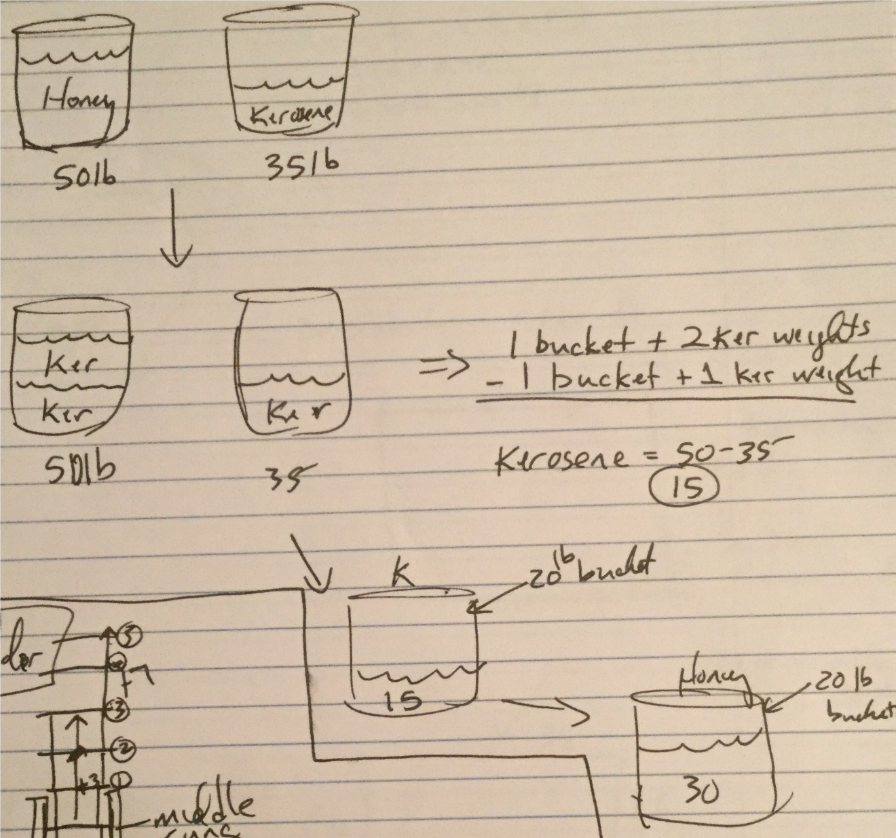 Honey
Kerosene
50lb
35lb
Ker
Ker
Ker
50lb
35
=> 1 bucket + 2 Ker weights
- 1 bucket + 1 ker weight
Kerosene = 50-35
15
K
20lb bucket
15
Honey
20 lb
bucket
30
der
5
3
2
+3
1
middle